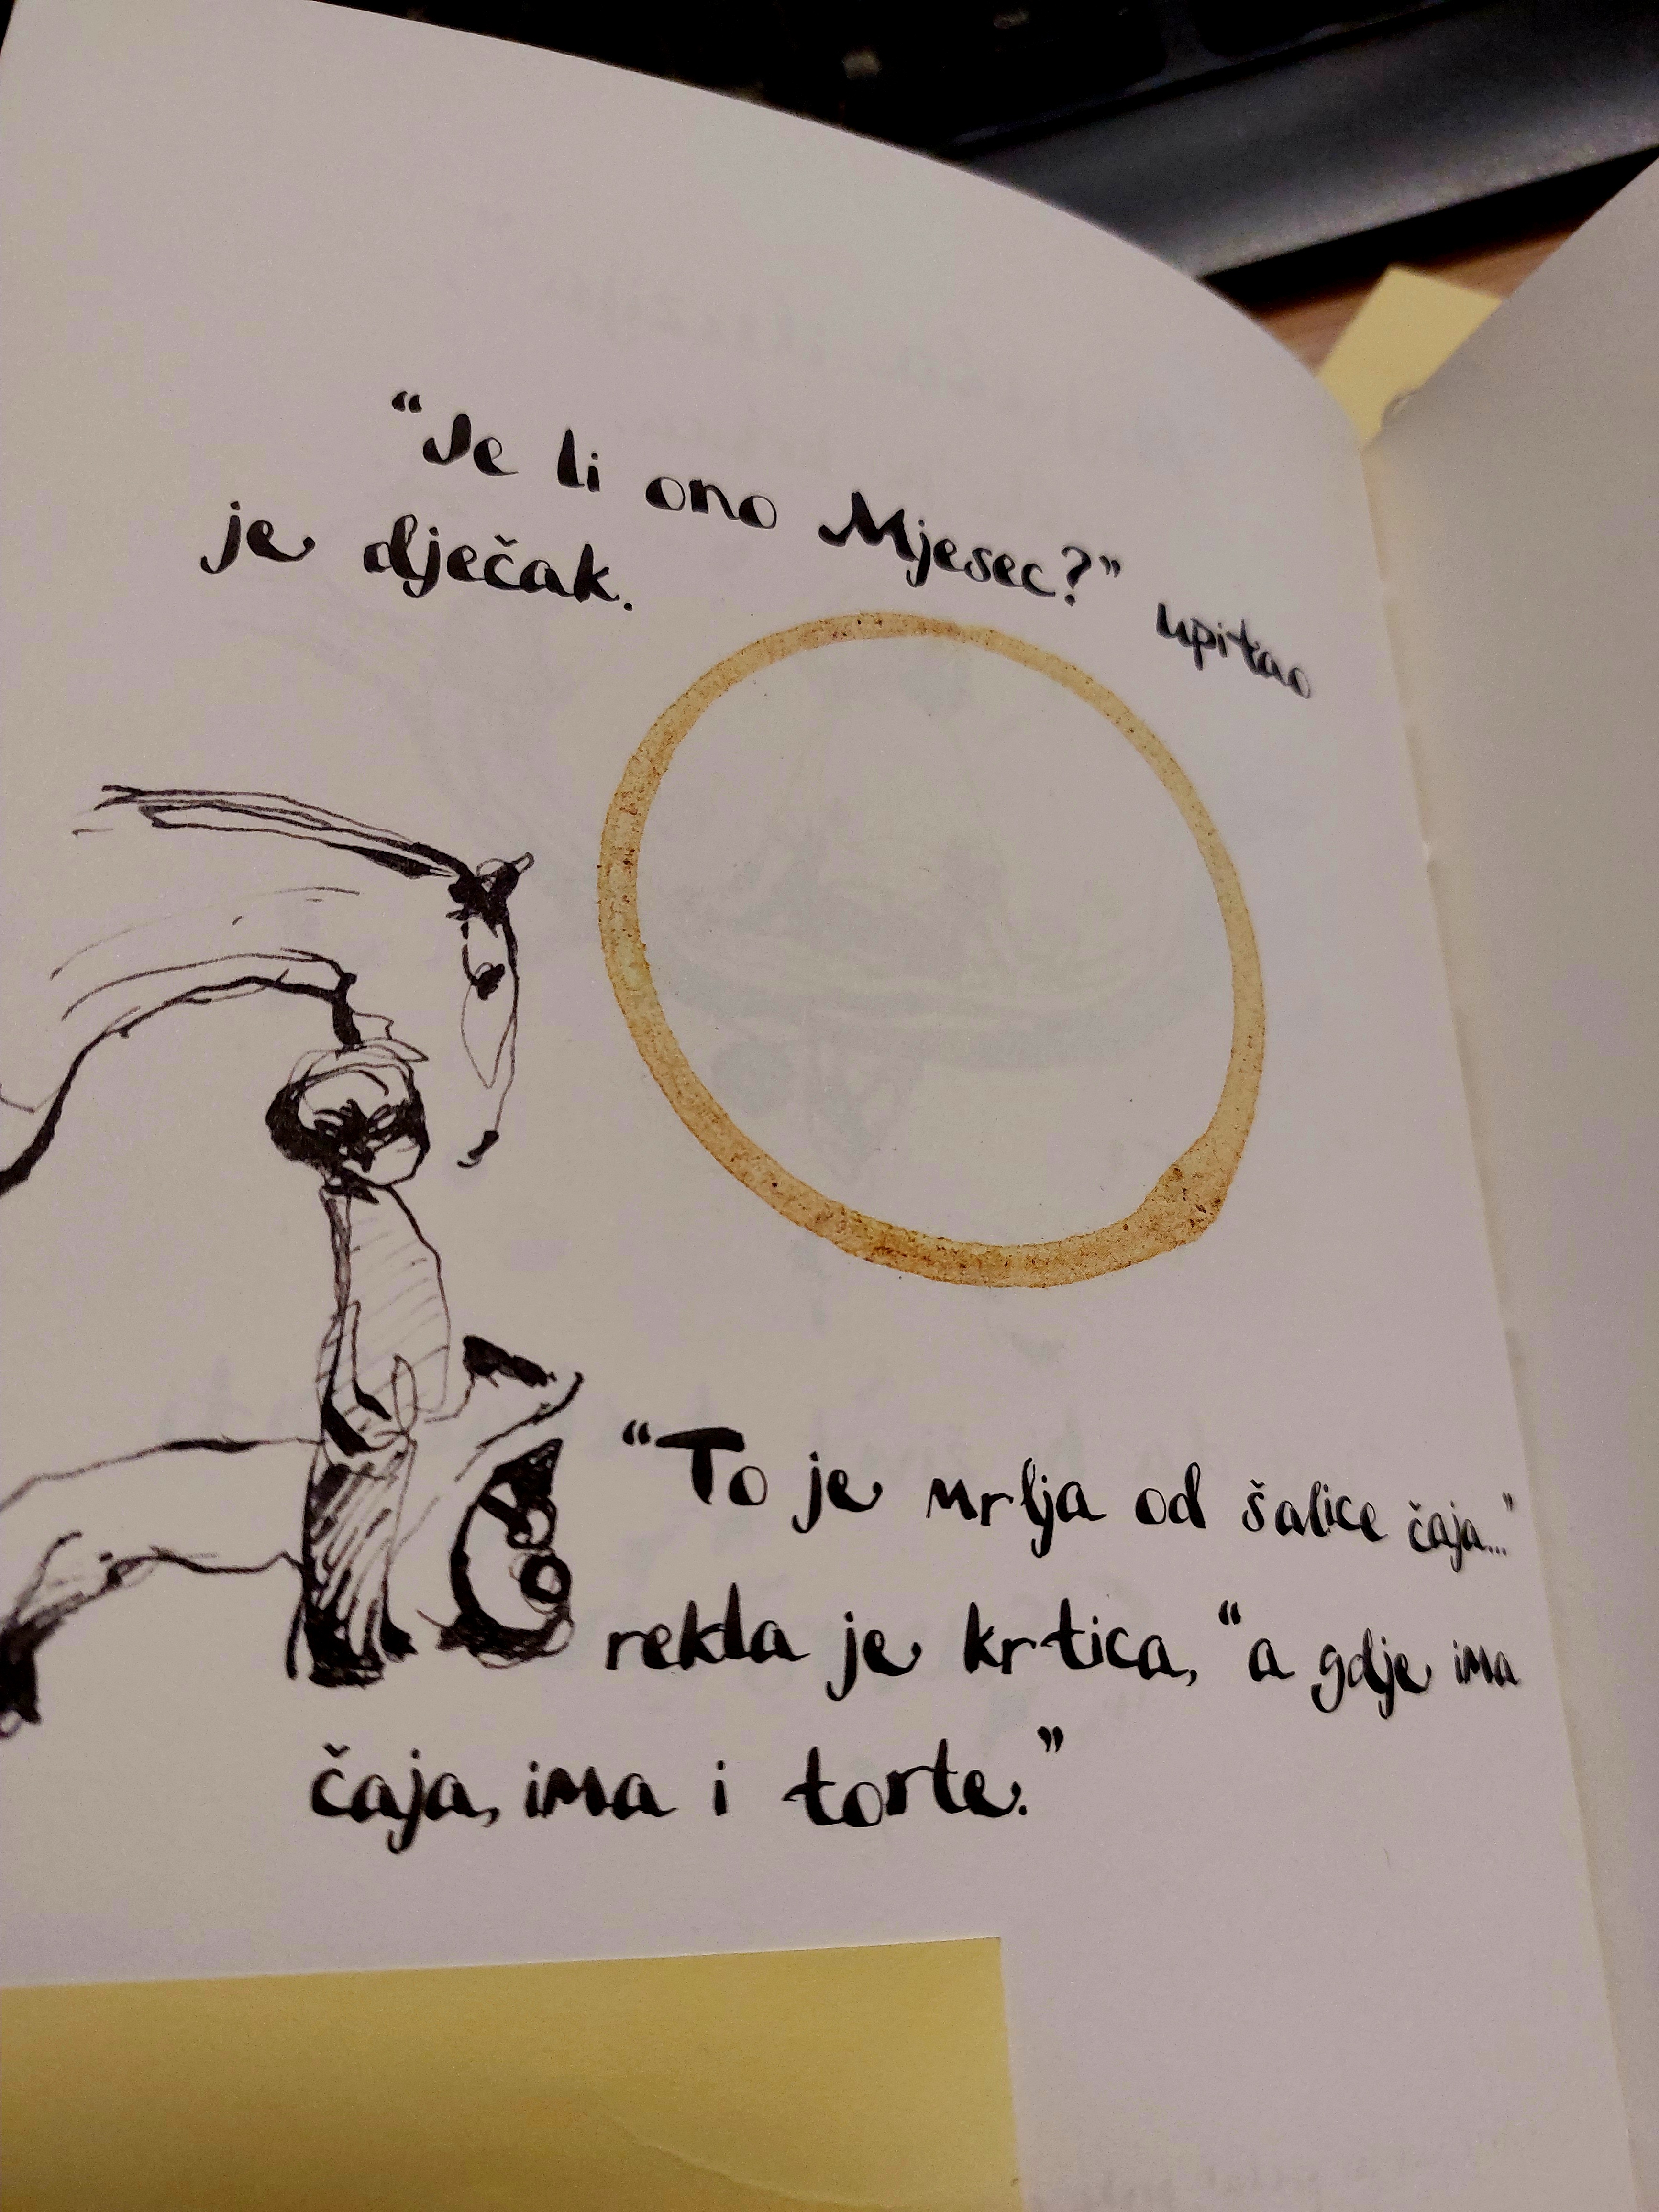 “Je li ono Mjesec?” upitao
je dječak.
“To je mrlja od šalice čaja...”
rekla je krtica, “a gdje ima
čaja, ima i torte.”